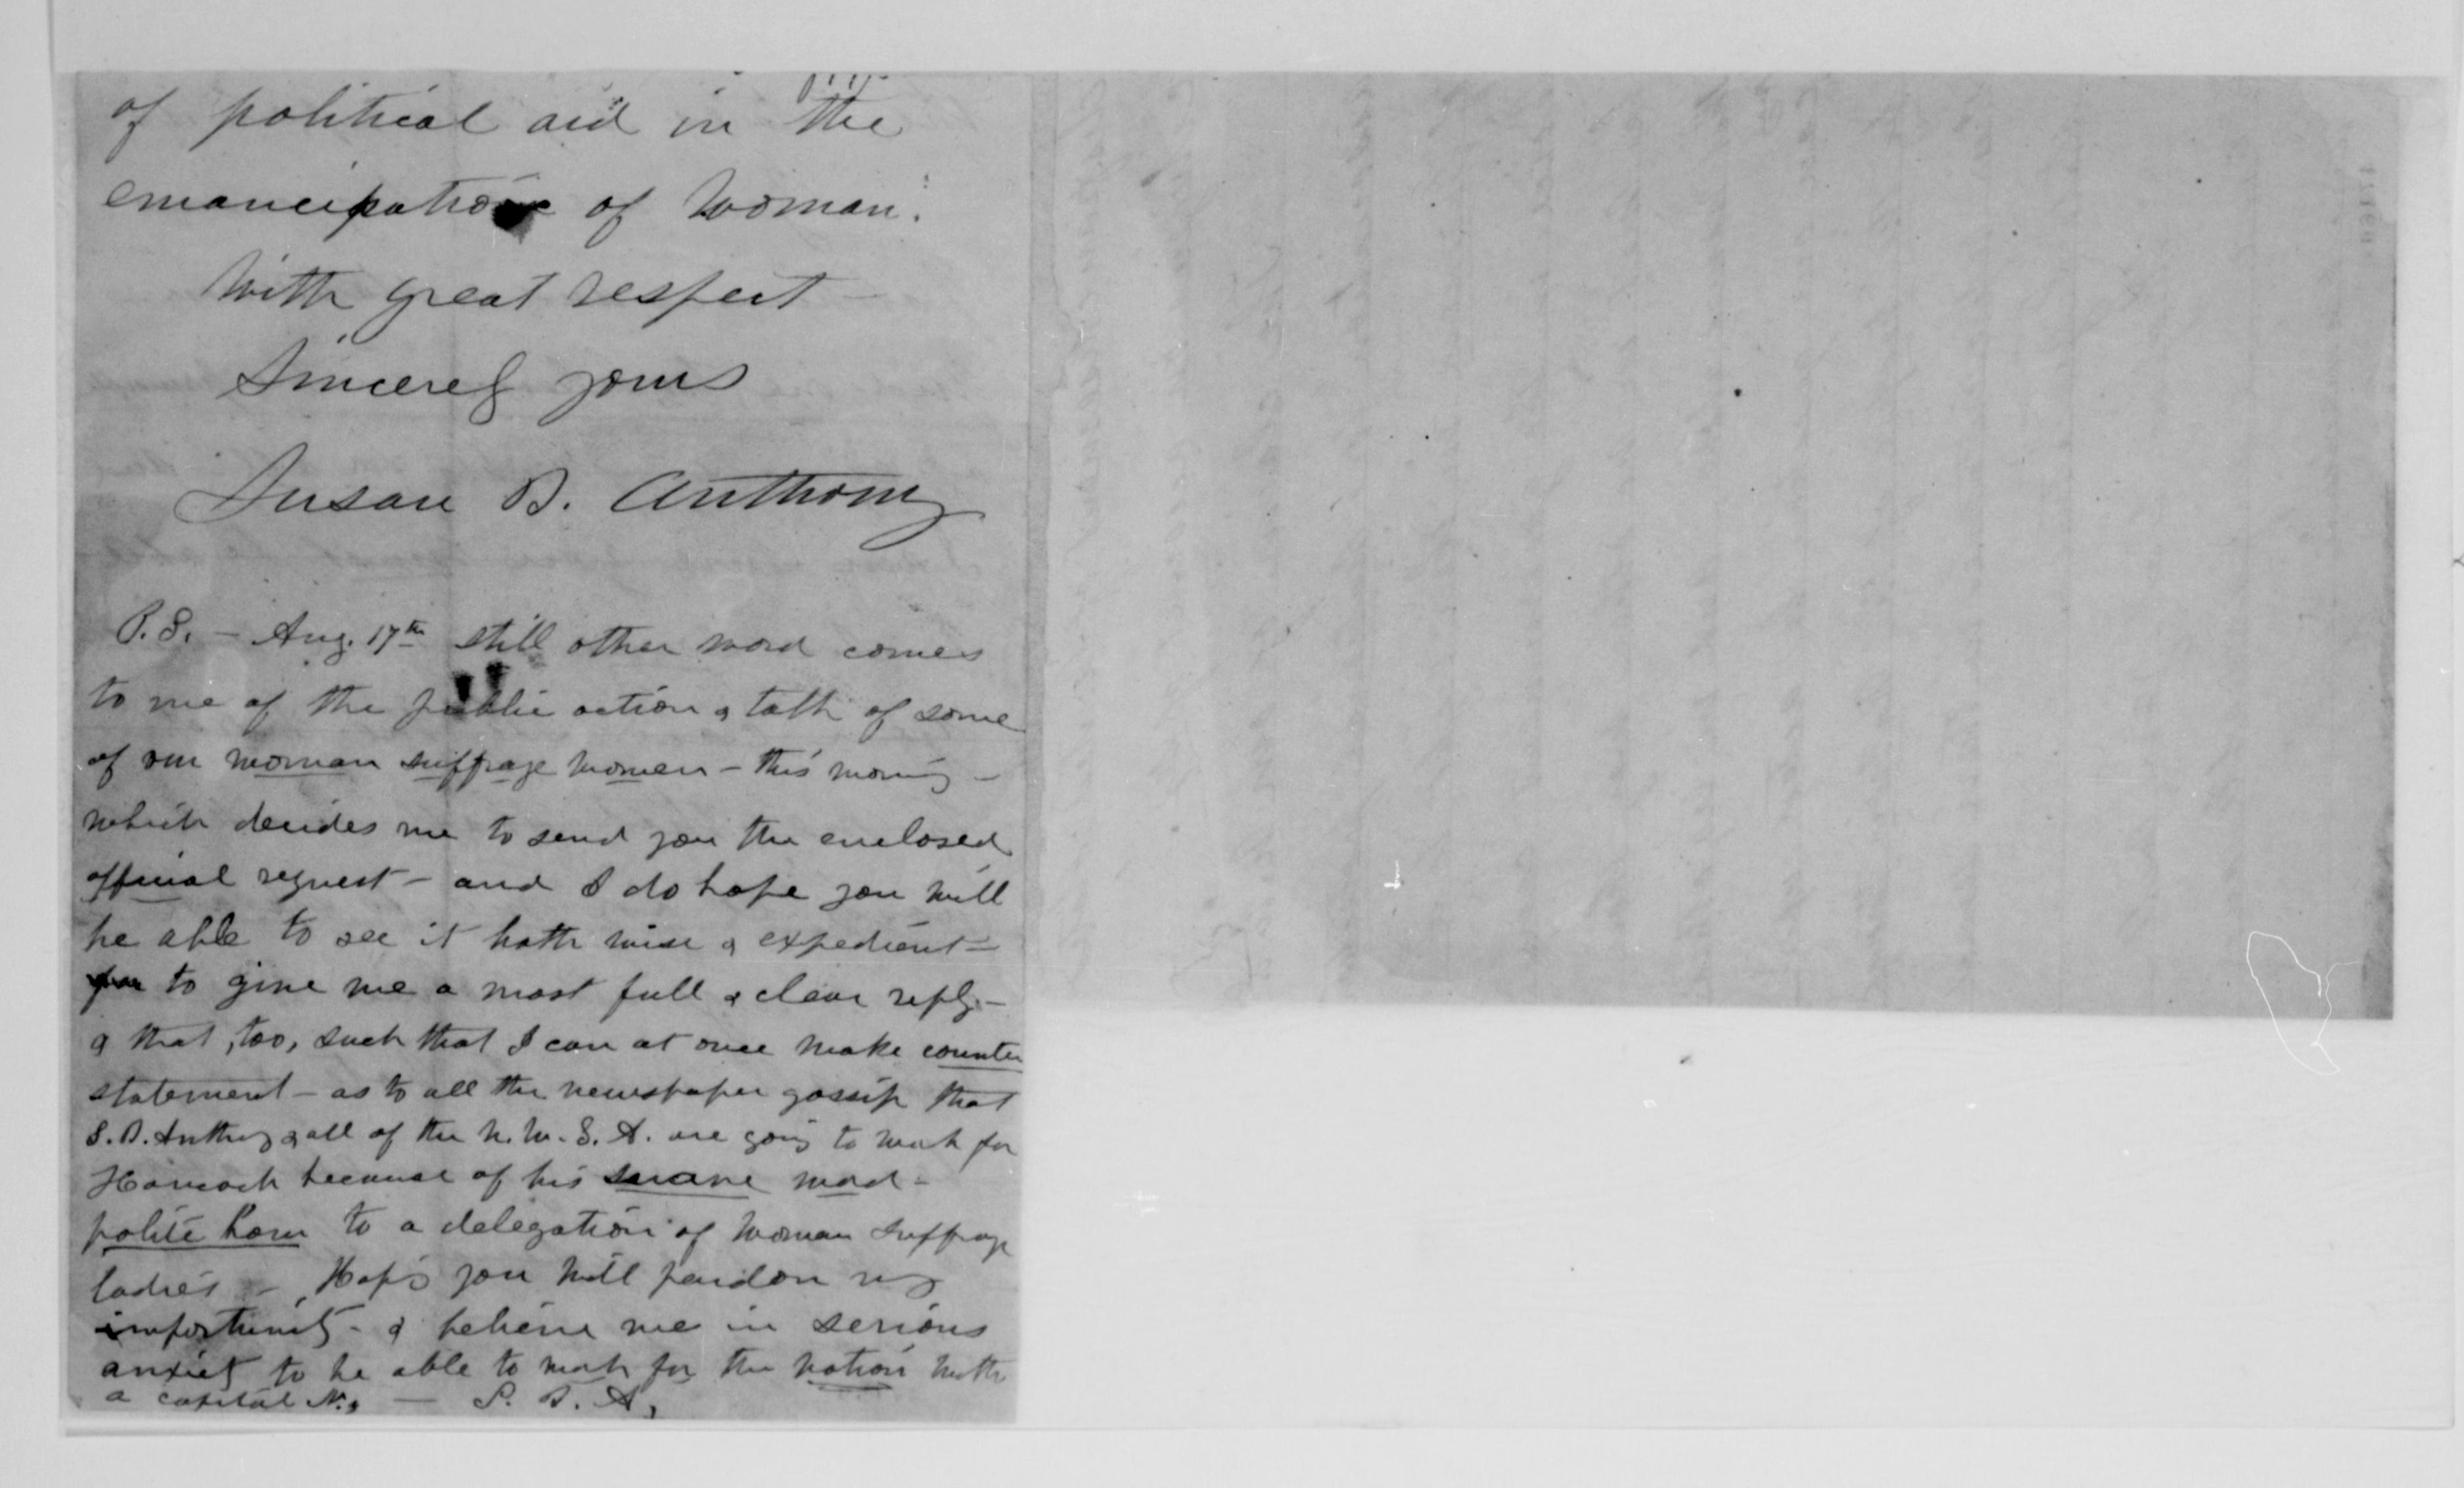 of political aid in the
emancipation of woman.
With great respect –
Sincerely yours
Susan B. Anthony
P.S. – Aug. 17th still other word comes
to me of the public action & talk of some
of our woman suffrage women – this morning –
which decides me to send you the enclosed
official request – and I do hope you will
be able to see it both wise & expedient –
to give me a most full & clear reply –
& that, too, such that I can at once make counter
statement – as to all the newspaper gossip that
S. B. Anthony & all of the N. W. S. A. are going to work for
Hancock because of his suave word –
polite bow to a delegation of woman suffrage
ladies –, Hope you will pardon my
importunity – & believe me in serious
anxiety to be able to work for the nation with
a capital N., — S. B. A.,